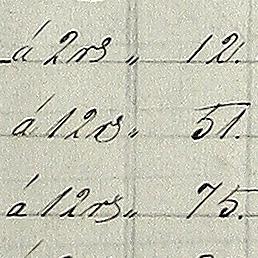 á 2rs „ 12.
á 12rs „ 51.
á 12rs „ 75.